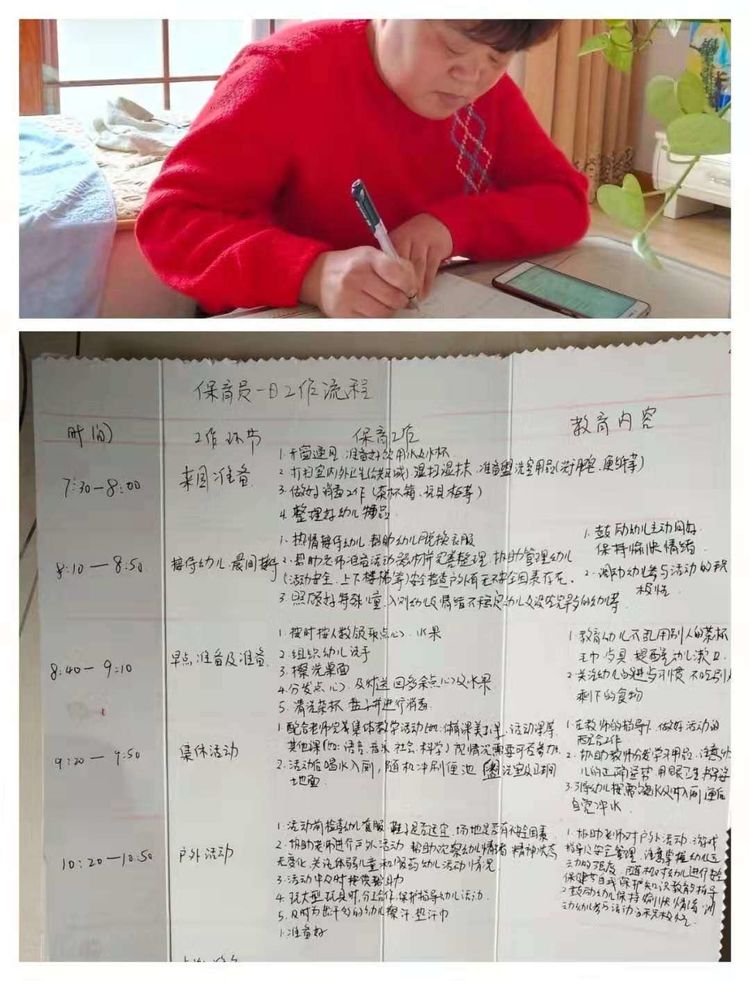 保育员一日工作流程
时间
工作环节
保育工作
教育内容
7:30—8:00
来园准备
1.开窗通风,准备好饮用水及水杯
2.打扫室内外卫生(分类区域)湿扫湿抹,准备盥洗室用品(洗手肥皂、便纸等)
3.做好消毒工作(茶杯箱、玩具柜等)
4.整理好幼儿物品
8:10—8:50
接待幼儿 晨间接待
1.热情接待幼儿 帮助幼儿脱换衣服
2.帮助老师准备活动器材并完善整理,协助管理幼儿
(活动安全、上下楼梯等)
3.照顾好特殊儿童、
1.鼓励幼儿主动问好,
保持愉快情绪
2.调动幼儿参与活动的积
极性
8:40—9:10
早点准备及准备
1.按时按人数领取点心、水果
2.组织幼儿洗手
3.擦洗桌面
4.分发点心、及时送回多余点心及水果
5.清洗茶杯、盘子并进行消毒
1.教育幼儿不乱用别人的茶杯
毛巾与具 提醒幼儿漱口
2.关注幼儿的进与习惯 不吃别人
剩下的食物
9:20—9:50
集体活动
1.配合老师完善集体教学活动
其他课(如:语言、音乐、社会、科学)视情况需要可否参加
2.活动后喝水入厕,随机冲刷便池
地面
1.在教师的指导下,做好活动的
配合工作
2.协助教师分发学习用品,注意幼
儿的正确坐姿 用眼卫生
自觉冲水
10:20—10:50
户外活动
1.活动前检查幼儿衣服、鞋子是否适宜,场地是否有不安全因素
2.协助老师进行户外活动 帮助观察幼儿情绪 精神状态
有无变化,关注体弱儿童和服药幼儿活动情况
3.活动中及时提供帮助
4.玩大型玩具时,分工合作,保护指导幼儿活动
5.及时为出汗多的幼儿擦汗、垫汗巾
1.准备好
1.协助老师对户外活动、游戏
指导及安全管理,注意掌握幼儿运
动的强度,随机对幼儿进行
保健与自我保护知识教育的指导
2.鼓励幼儿保持愉快情绪,调
动幼儿参与活动的积极性。